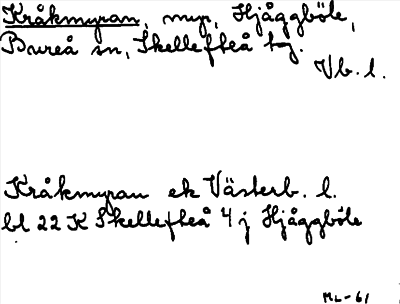 Kråkmyran, myr, Hjåggböle,
Bureå sn, Skellefteå tg.
Vb. l.
Kråkmyran ek Västerb. l.
bl 22 K Skellefteå 4 j Hjåggböle
ML-61